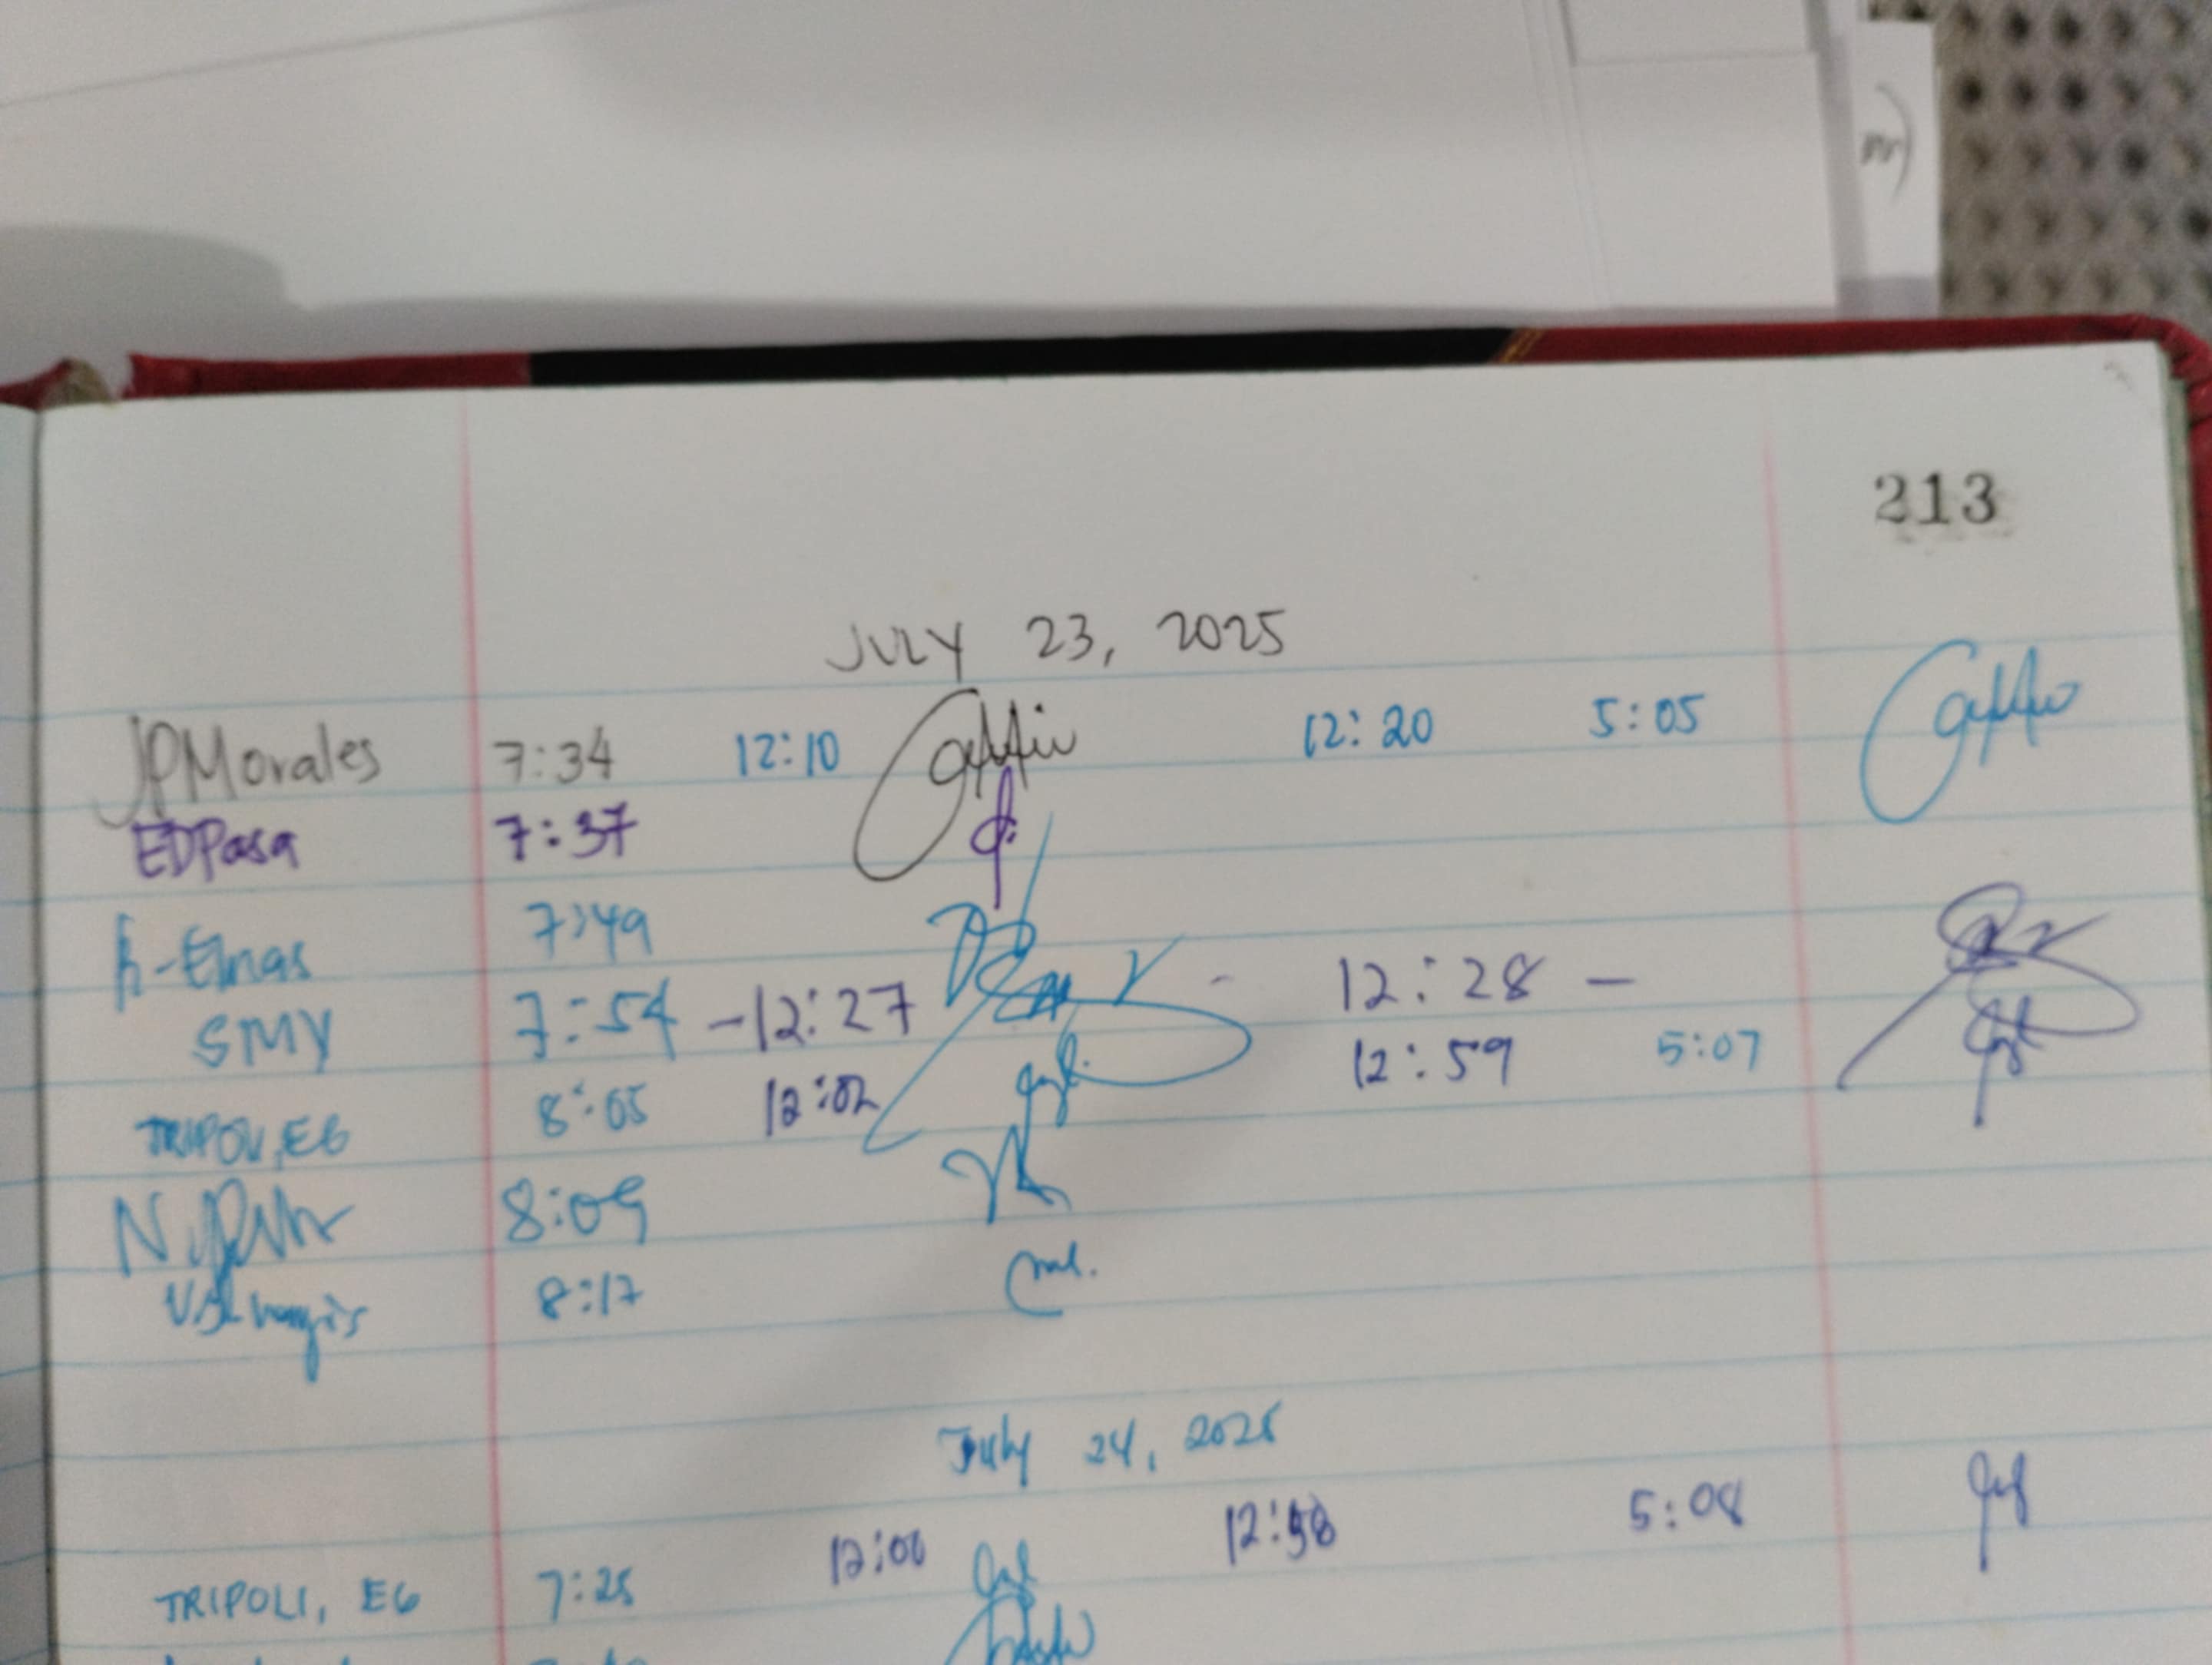 213
JULY 23, 2025
JPMorales 7:34 12:10 12:20 5:05
EDPasa 7:37
7:49
SMY 7:54 -12:27 - 12:28 -
TRIPOLI, EG 8:05 12:02 12:59 5:07
N 8:09
8:17
July 24, 2025
TRIPOLI, EG 7:25 12:00 12:58 5:08